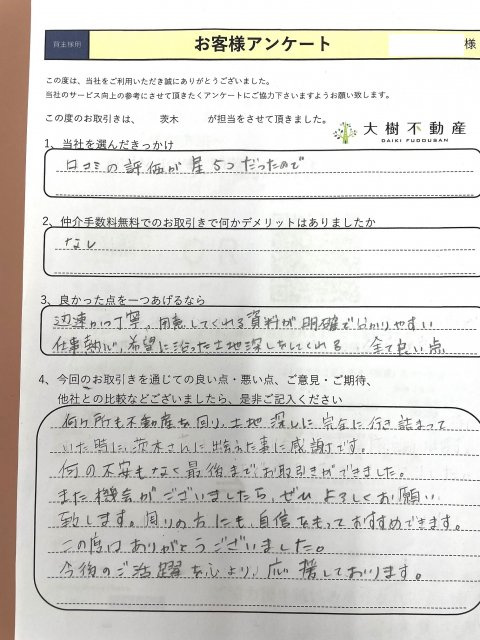 買主様用
お客様アンケート
様
この度は、当社をご利用いただき誠にありがとうございました。
当社のサービス向上の参考にさせて頂きたくアンケートにご協力下さいますようお願い致します。
この度のお取引きは、 茨木 が担当をさせて頂きました。
大樹不動産
DAIKI FUDOUSAN
1、当社を選んだきっかけ
口コミの評価が星5つだったので
2、仲介手数料無料でのお取引きで何かデメリットはありましたか
なし
3、良かった点を一つあげるなら
迅速かつ丁寧。用意してくれる資料が明確で分かりやすい
仕事熱心、希望に沿った土地探しをしてくれる 全て良い点
4、今回のお取引きを通じての良い点・悪い点、ご意見・ご期待、
他社との比較などございましたら、是非ご記入ください
何ヶ所も不動産を回り、土地探しに完全に行き詰まって
いた時に、茨木さんに出会うた事に感謝です。
何の不安もなく最後までお取引きができました。
また機会がございましたら、ぜひよろしくお願い
致します。周りの方にも、自信をもっておすすめできます。
この度はありがとうございました。
今後のご活躍を心より、応援しております。